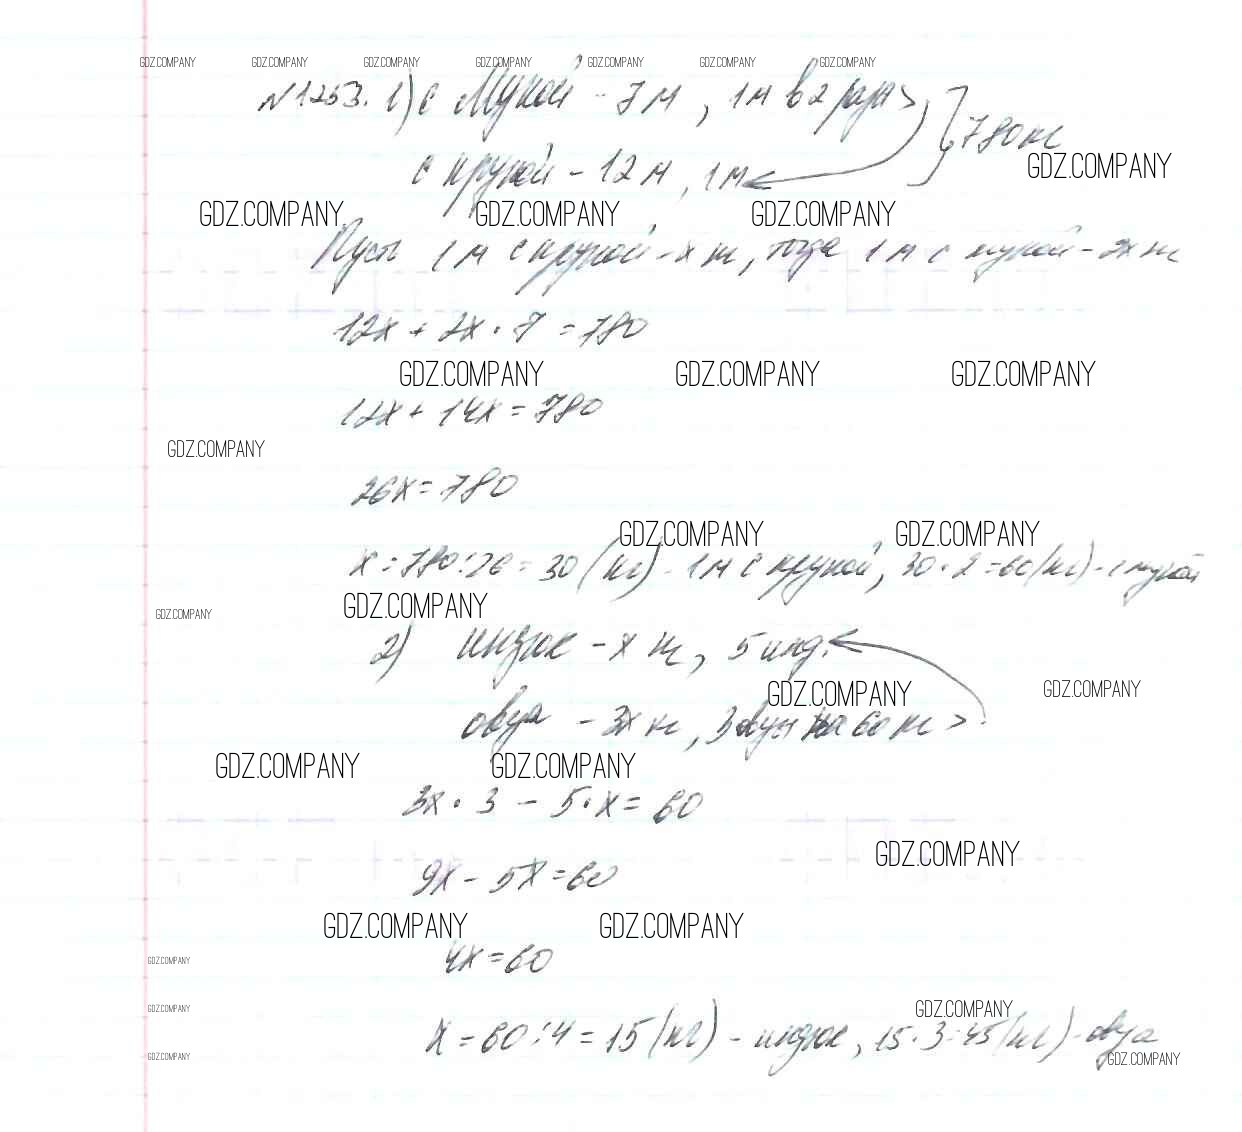 GDZ.COMPANY GDZ.COMPANY GDZ.COMPANY GDZ.COMPANY GDZ.COMPANY GDZ.COMPANY GDZ.COMPANY
№1253. 1) С мукой - 7 м, 1 м в 2 раза >
780 кг
с крупой - 12 м, 1 м
GDZ.COMPANY
GDZ.COMPANY GDZ.COMPANY GDZ.COMPANY
Пусть 1 м с крупой - x кг, тогда 1 м с мукой - 2x кг
12x + 2x · 7 = 780
GDZ.COMPANY GDZ.COMPANY GDZ.COMPANY
12x + 14x = 780
GDZ.COMPANY
26x = 780
GDZ.COMPANY GDZ.COMPANY
x = 780 : 26 = 30 (кг) - 1 м с крупой, 30 · 2 = 60 (кг) - с мукой
GDZ.COMPANY GDZ.COMPANY
2) индюк - x кг, 5 инд.
GDZ.COMPANY GDZ.COMPANY
овца - 3x кг, 3 овцы на 60 кг >
GDZ.COMPANY GDZ.COMPANY
3x · 3 - 5 · x = 60
GDZ.COMPANY
9x - 5x = 60
GDZ.COMPANY GDZ.COMPANY
4x = 60
GDZ.COMPANY
GDZ.COMPANY GDZ.COMPANY
x = 60 : 4 = 15 (кг) - индюк, 15 · 3 = 45 (кг) - овца
GDZ.COMPANY GDZ.COMPANY